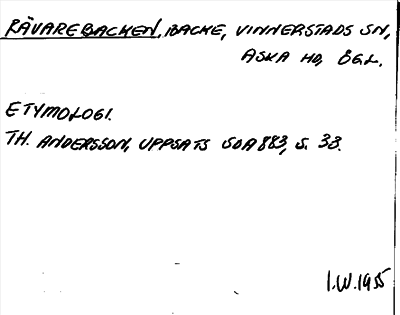 RÄVAREBACKEN, BACKE, VINNERSTADS SN,
ASKA HD, ÖGL.
ETYMOLOGI.
TH. ANDERSSON, UPPSATS SOA 883, S. 33.
I.W. 1955